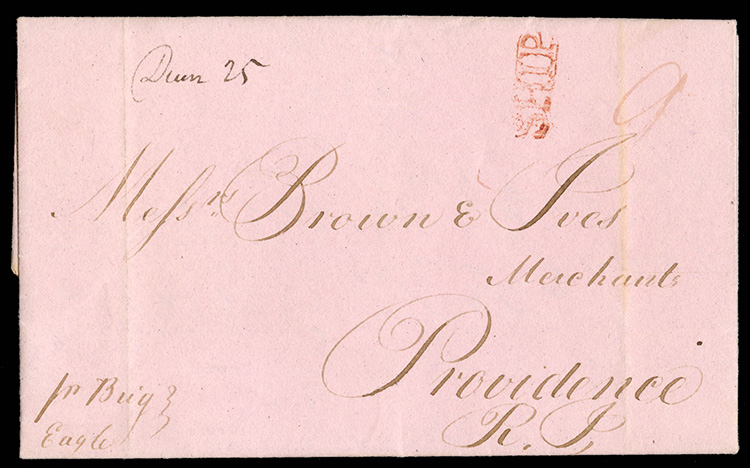 25
SHIP
9
Messrs Brown & Ives
Merchants
Providence
R. I,
pr Brig
Eagle